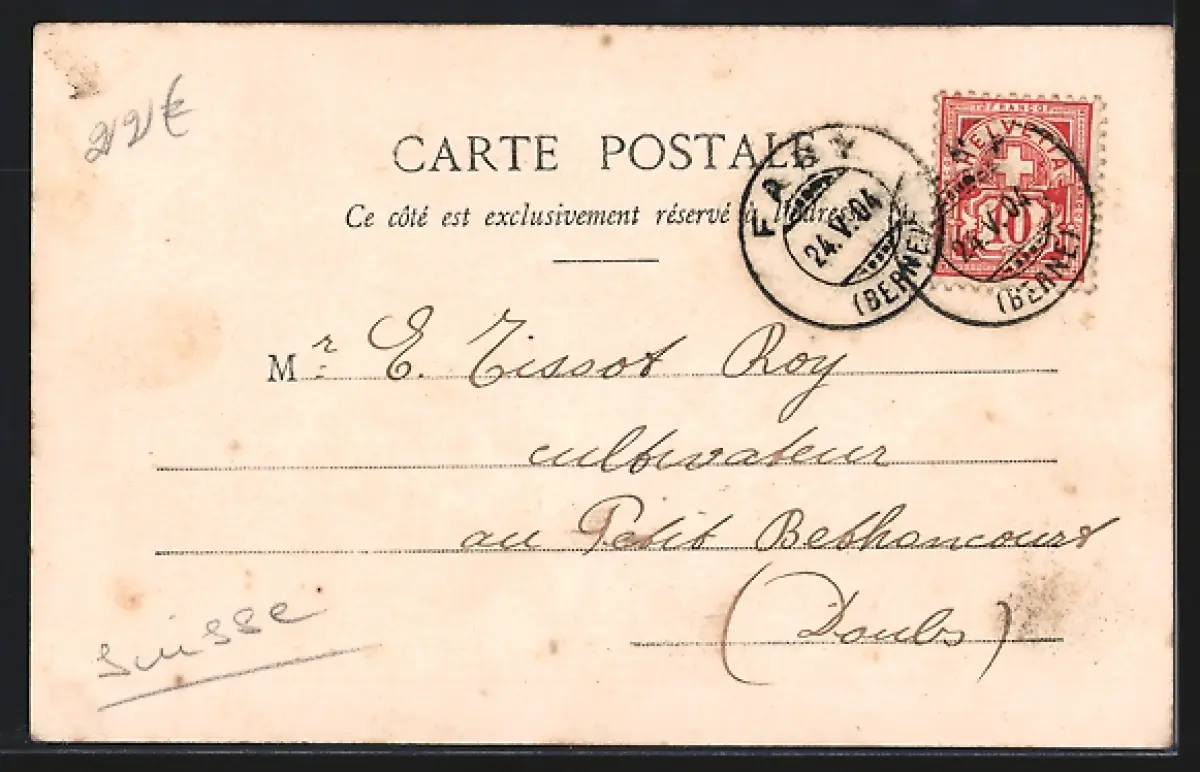 22€
CARTE POSTALE
Ce côté est exclusivement réservé à l'adresse
FRANCO
HELVETIA
10
24.V.04
(BERNE)
24.V.04
(BERNE)
Mr E. Tissot Roy
cultivateur
au Petit Bethancourt
(Doubs)
Suisse